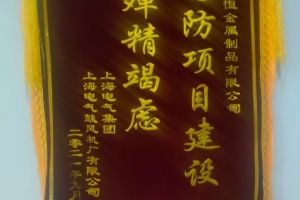 恒金属制品有限公司
防项目建设
殚精竭虑
上海电气集团
上海电气鼓风机厂有限公司
二〇二一年九月